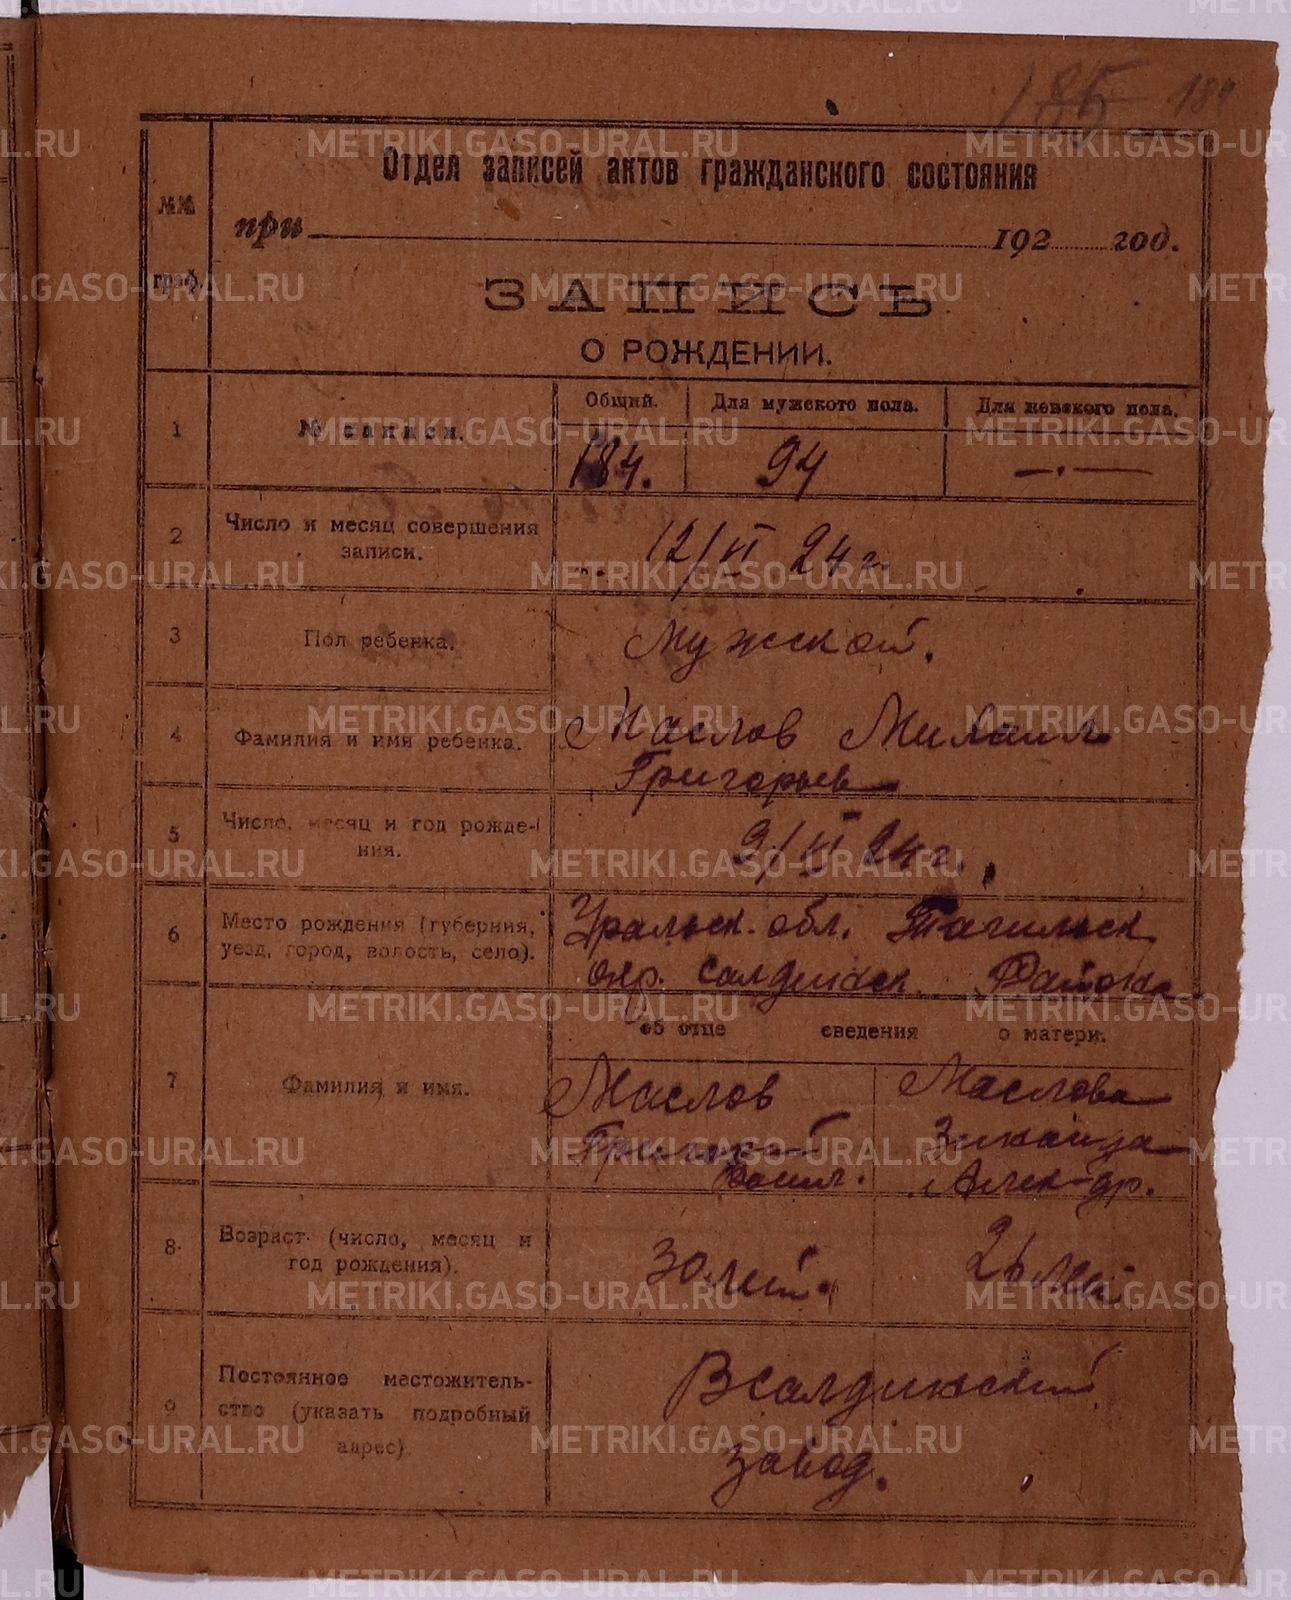 185 184
Отдел записей актов гражданского состояния
при 192 год.
№№ граф.
ЗАПИСЬ
О РОЖДЕНИИ.
1 № записи. Общий. Для мужского пола. Для женского пола.
184. 94 —·—
2 Число и месяц совершения записи. 12/VI 24 г.
3 Пол ребенка. Мужской.
4 Фамилия и имя ребенка. Маслов Михаил
Григорьев
5 Число, месяц и год рожде-
ния. 9/VI 24 г.
6 Место рождения (губерния, Уральск. обл. Тагильск
уезд, город, волость, село). окр. Салдинск. Района
об отце сведения о матери.
7 Фамилия и имя. Маслов Маслова
Григорий Зинаида
Васил. Алек-др.
8 Возраст (число, месяц и
год рождения). 30 лет. 26 лет
9 Постоянное местожитель-
ство (указать подробный
адрес) ВСалдинский
завод.
METRIKI.GASO-URAL.RU